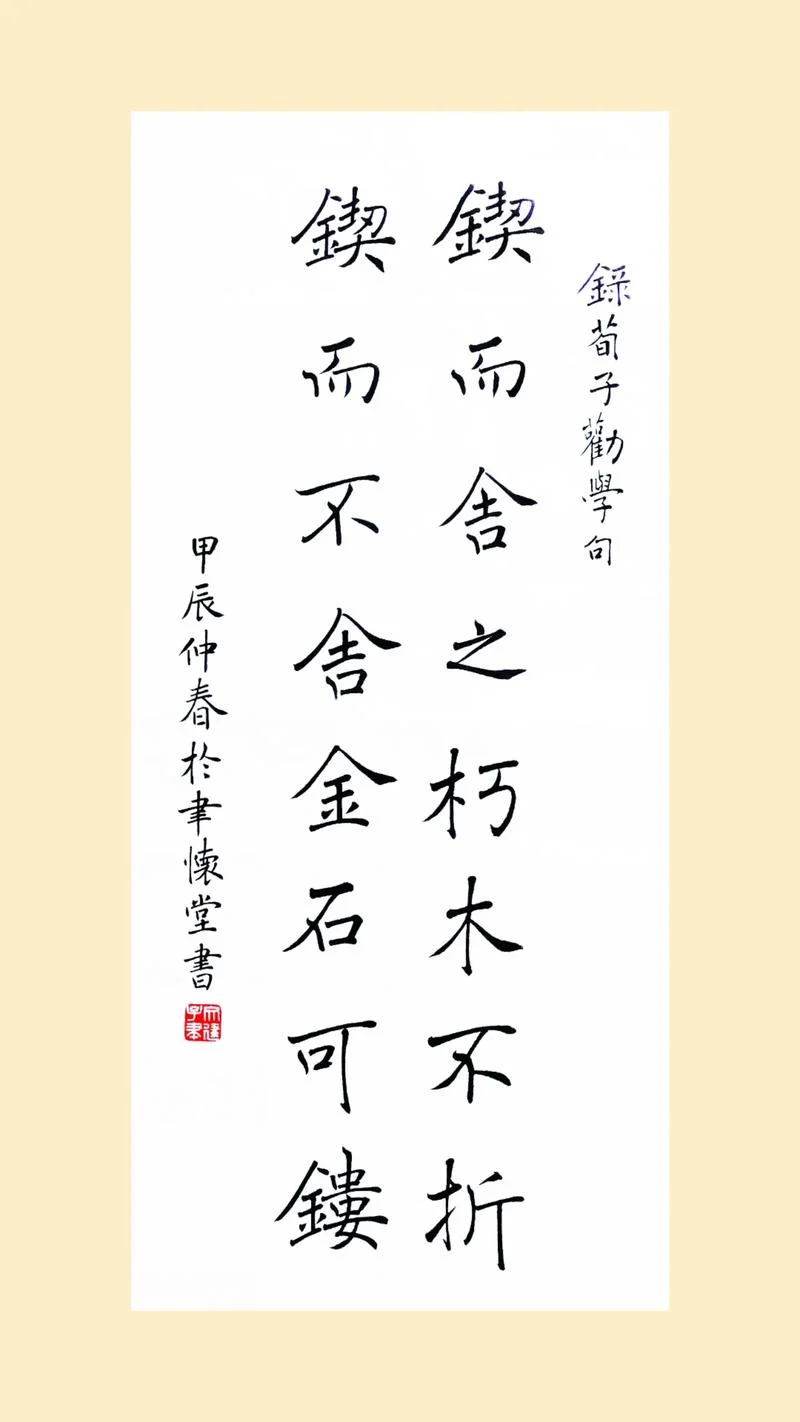 錄荀子勸學句
鍥而舍之朽木不折
鍥而不舍金石可鏤
甲辰仲春於聿懷堂書